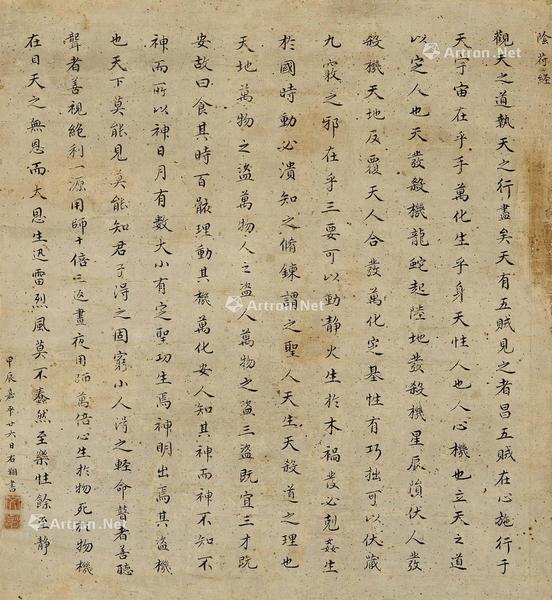 陰符経
觀天之道執天之行盡矣天有五賊見之者昌五賊在心施行于
天宇宙在乎手萬化生乎身天性人也人心機也立天之道
以定人也天發殺機龍蛇起陸地發殺機星辰隕伏人發
殺機天地反覆天人合發萬化定基性有巧拙可以伏藏
九竅之邪在乎三要可以動靜火生於木禍發必剋姦生
於國時動必潰知之脩鍊謂之聖人天生天殺道之理也
天地萬物之盜萬物人之盜人萬物之盜三盜既宜三才既
安故曰食其時百骸理動其機萬化安人知其神而神不知不
神而所以神日月有數大小有定聖功生焉神明出焉其盜機
也天下莫能見莫能知君子得之固窮小人得之輕命瞽者善聽
聾者善視絕利一源用師十倍三返晝夜用師萬倍心生於物死於物機
在目天之無恩而大恩生迅雷烈風莫不蠢然至樂性餘至靜
甲辰嘉平廿六日石翔書
Artron.Net
Artron.Net
Artron.Net
Artron.Net
Artron.Net